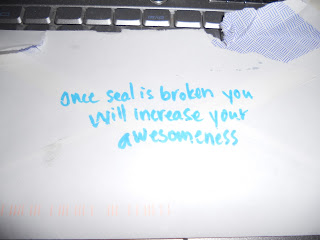 once seal is broken you
will increase your
awesomeness